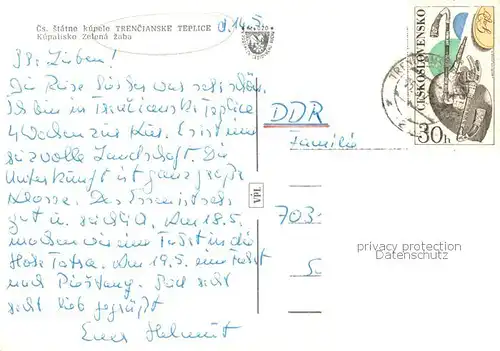 Čs. štátne kúpele TRENČIANSKE TEPLICE
Kúpalisko Zelená žaba
d. 14.5.
Ihr Lieben!
Die Reise hierher war sehr schön.
Ich bin in Trencianske Teplice
4 Wochen zur Kur. Es ist eine
reizvolle Landschaft. Die
Unterkunft ist ganz große
Klasse. Das Essen ist sehr
gut u. reichl. Am 18.5.
machen wir eine Fahrt in die
Hohe Tatra. Am 19.5. eine Fahrt
nach Piešťany. Seid recht
recht lieb gegrüßt
Euer Helmut
DDR
Familie
703
VPL
ČESKOSLOVENSKO
30h
privacy protection
watermark